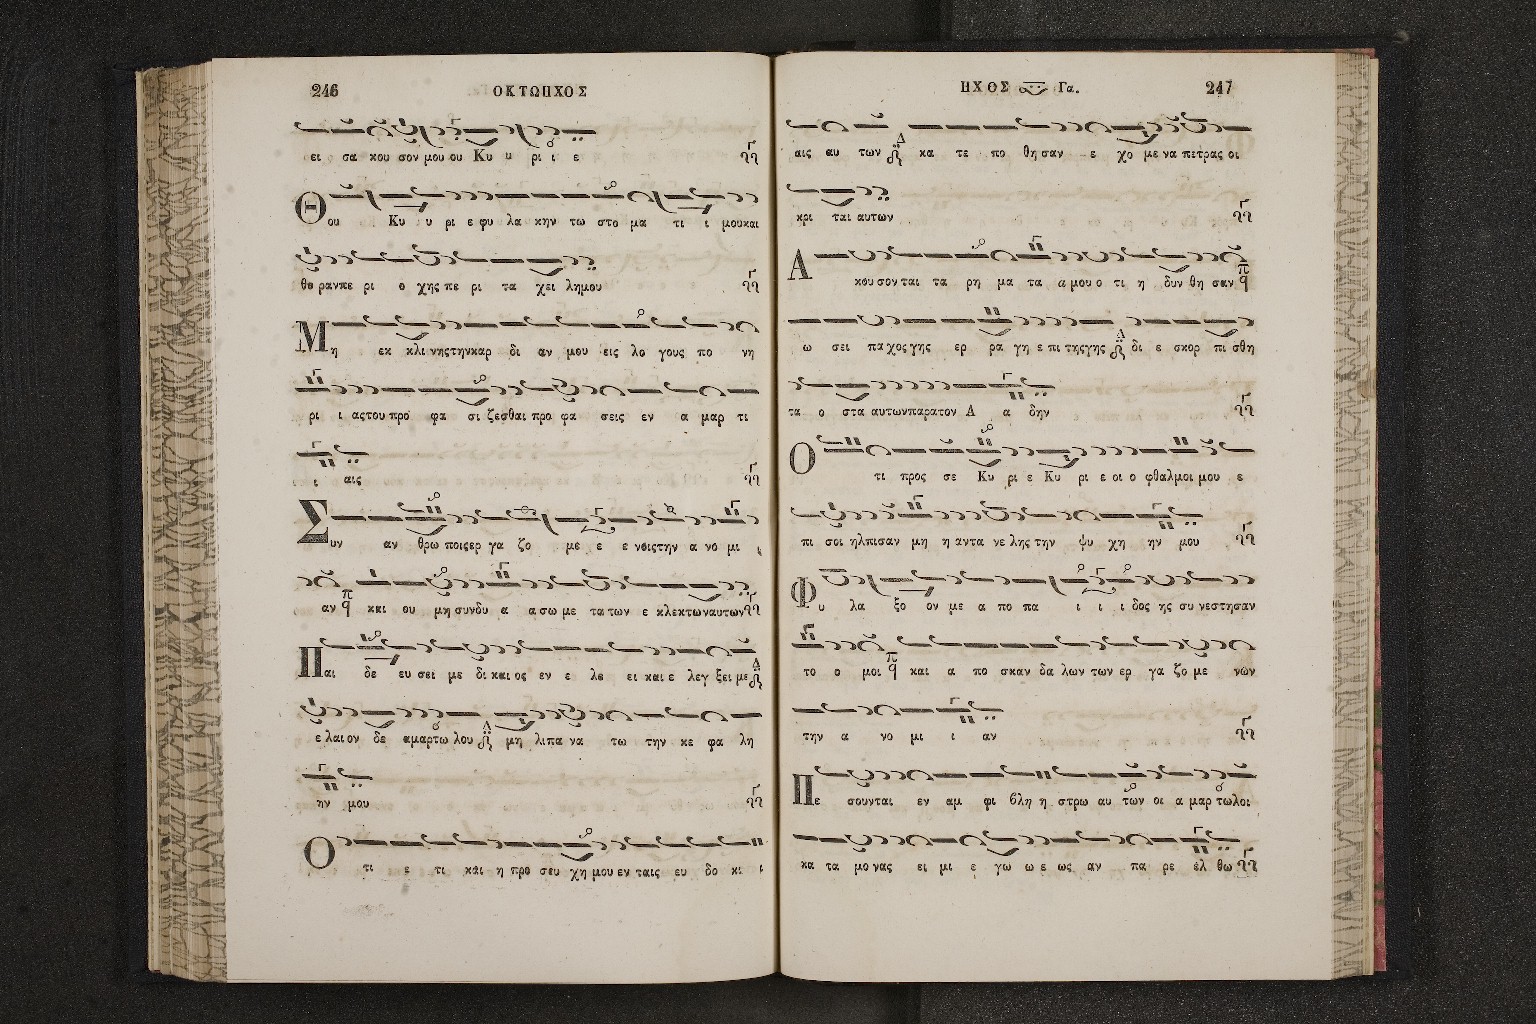 246
ΟΚΤΩΗΧΟΣ
ει σα κου σον μου ου Κυ υ ρι ι ε
Θου Κυ υ ρι ε φυ λα κην τω στο μα τι ι μου και
θυ ραν πε ρι ο χης πε ρι τα χει λη μου
Μη εκ κλι νης την καρ δι αν μου εις λο γους πο νη
ρι ι ας του προ φα σι ζεσθαι προ φα σεις εν α μαρ τι
ι αις
Συν αν θρω ποις ερ γα ζο με ε ε νοις την α νο μι ι
αν και ου μη συνδυ α α σω με τα των ε κλεκτων αυτων
Παι δε ευ σει με δι και ος εν ε λε ει και ε λεγ ξει με
ε λαι ον δε αμαρτω λου μη λιπα να τω την κε φα λη
ην μου
Οτι ε τι και η προ σευ χη μου εν ταις ευ δο κι ι
ΗΧΟΣ Γα.
247
αις αυ των κα τε πο θη σαν ε χο με να πετρας οι
κρι ται αυτων
Ακου σον ται τα ρη μα τα α μου ο τι η δυν θη σαν
ω σει πα χος γης ερ ρα γη ε πι της γης δι ε σκορ πι σθη
τα ο στα αυτων παρα τον Α α δην
Οτι προς σε Κυ ρι ε Κυ ρι ε οι ο φθαλμοι μου ε
πι σοι ηλπισαν μη η αντα νε λης την ψυ χη ην μου
Φυ λα ξο ον με α πο πα ι ι ι δος ης συ νεστησαν
το ο μοι και α πο σκαν δα λων των ερ γα ζο με νων
την α νο μι ι αν
Πε σουνται εν αμ φι βλη η στρω αυ των οι α μαρ τωλοι
κα τα μο νας ει μι ε γω ω ε ως αν πα ρε ελ θω